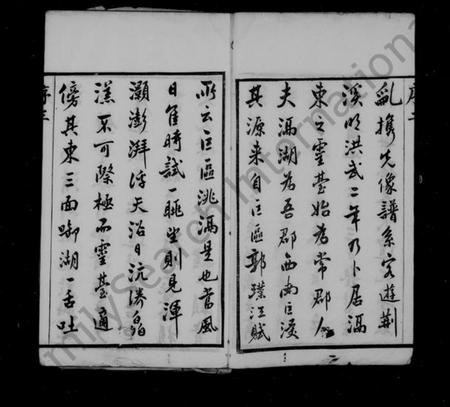 序二
亂攜先像譜系客遊荆
溪明洪武二年乃卜居滆
東之靈臺始為常郡人
夫滆湖為吾郡西南巨浸
其源来自巨區郭璞江賦
所云巨區洮滆是也當風
日隹時試一眺望則見渾
灝澎湃浮天浴日沆漭
漾不可際極而靈臺適
傍其東三面踞湖一舌吐
序三
milySearch International